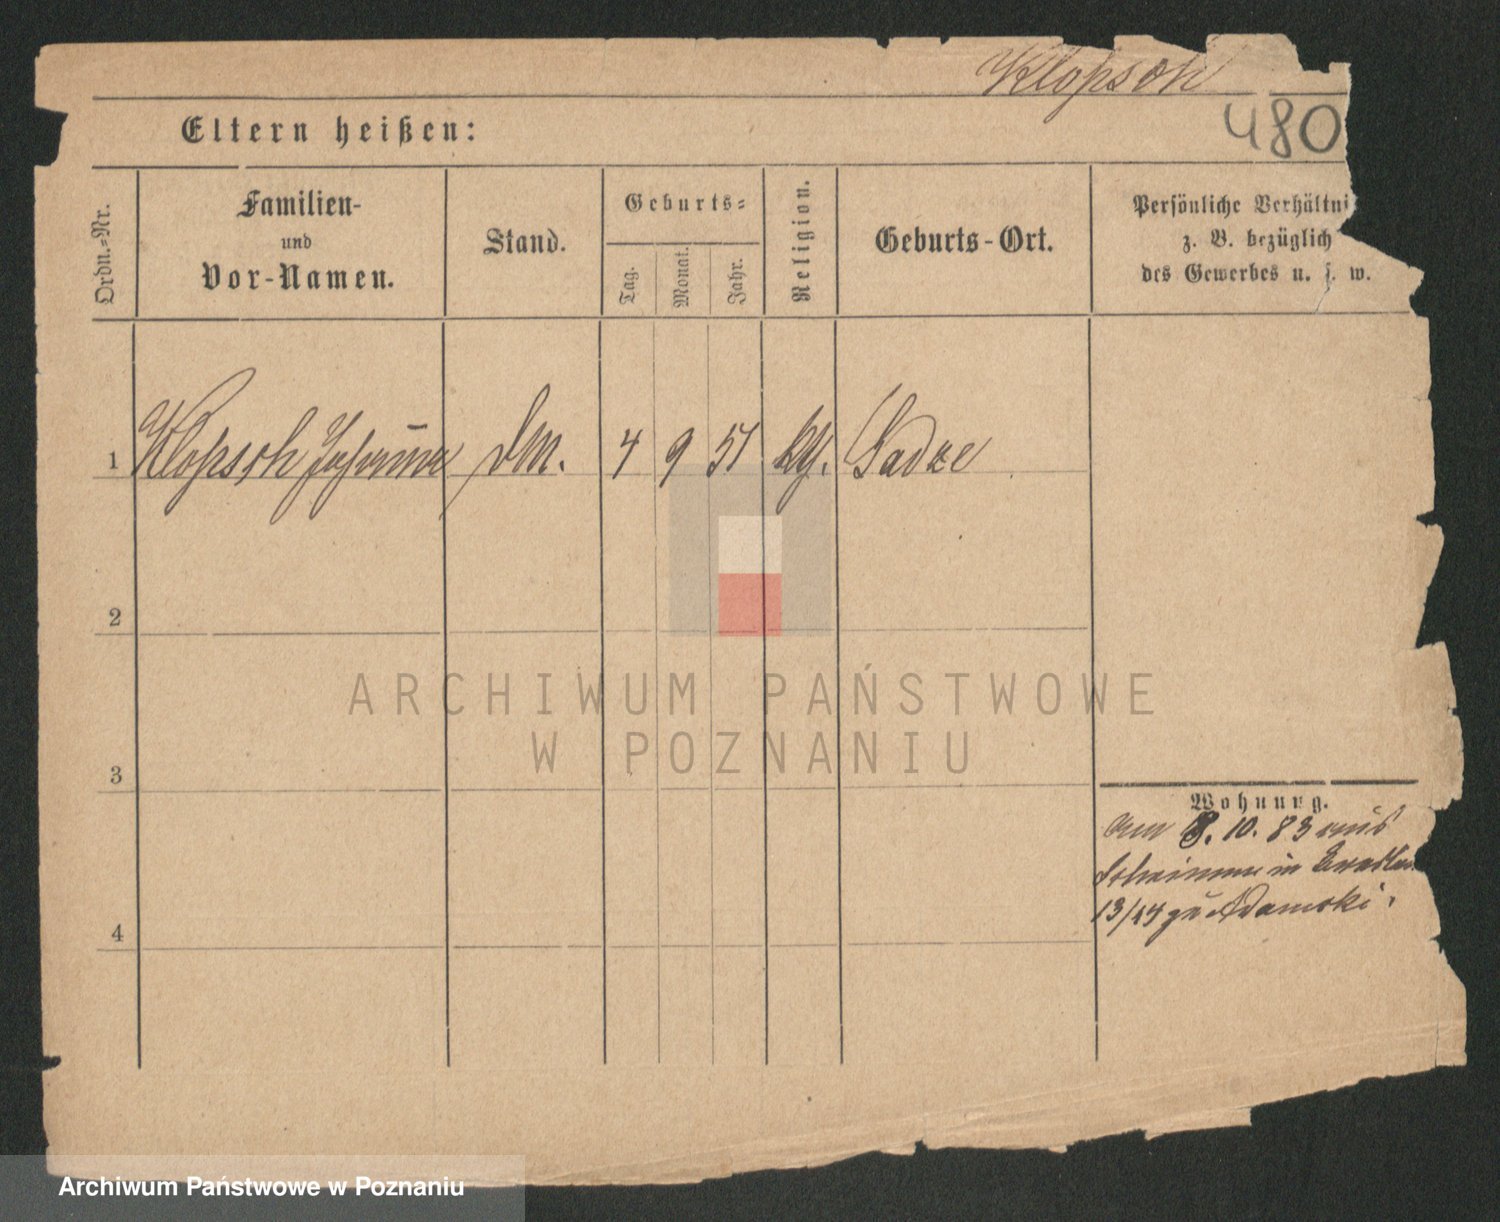 Klopsch
480
Eltern heißen:
Ordn.-Nr.
Familien-
und
Vor-Namen.
Stand.
Geburts-
Tag.
Monat.
Jahr.
Religion.
Geburts-Ort.
Persönliche Verhältni
z. B. bezüglich
des Gewerbes u. s. w.
1 Klopsch Johanna DM. 4 9 51 kt. Gadze
2
3
4
Wohnung.
am 8. 10. 83 aus
in
13/14 zu Adamski.
ARCHIWUM PAŃSTWOWE
W POZNANIU
Archiwum Państwowe w Poznaniu